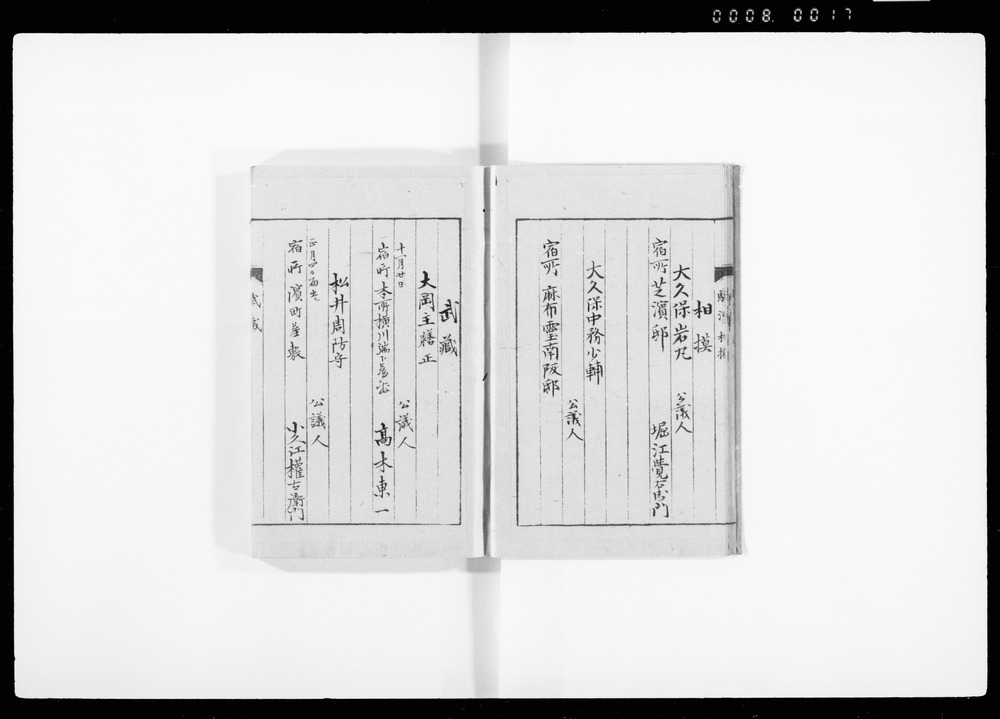 0008. 0017
相摸
大久保岩丸
公議人
宿所 芝濱邸
堀江覺右衛門
大久保中務少輔
公議人
宿所 麻布霊南阪邸
武藏
大岡主膳正
十一月廿日
公議人
宿所 本所横川端下屋敷
高木東一
松井周防守
公議人
宿所 濱町屋敷
小久江權右衛門
武藏